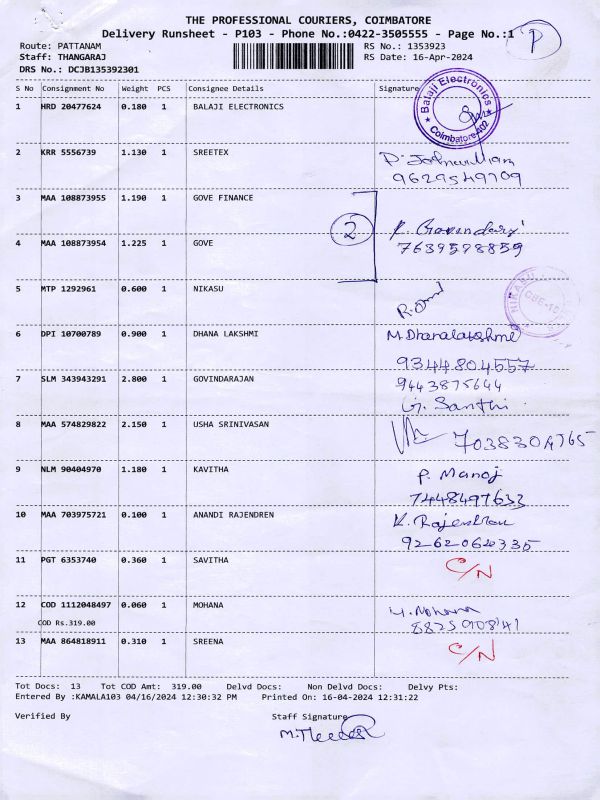 THE PROFESSIONAL COURIERS, COIMBATORE
Delivery Runsheet - P103 - Phone No.:0422-3505555 - Page No.:1 P
Route: PATTANAM RS No.: 1353923
Staff: THANGARAJ RS Date: 16-Apr-2024
DRS No.: DCJB135392301
S No Consignment No Weight PCS Consignee Details Signature
Balaji Electronics
1 HRD 20477624 0.180 1 BALAJI ELECTRONICS
Coimbatore
2 KRR 5556739 1.130 1 SREETEX
9629549709
3 MAA 108873955 1.190 1 GOVE FINANCE
2
4 MAA 108873954 1.225 1 GOVE 7639598859
5 MTP 1292961 0.600 1 NIKASU NIKASU
6 DPI 10700789 0.900 1 DHANA LAKSHMI M.Dhanalakshmi
9344804557
7 SLM 343943291 2.800 1 GOVINDARAJAN 9443875644
G. Santhi
8 MAA 574829822 2.150 1 USHA SRINIVASAN 7038304765
9 NLM 90404970 1.180 1 KAVITHA P. Manoj
7448497633
10 MAA 703975721 0.100 1 ANANDI RAJENDREN K. Rajendran
9262062335
11 PGT 6353740 0.360 1 SAVITHA C/N
12 COD 1112048497 0.060 1 MOHANA Mohana
COD Rs.319.00 8825908141
13 MAA 864818911 0.310 1 SREENA C/N
Tot Docs: 13 Tot COD Amt: 319.00 Delvd Docs: Non Delvd Docs: Delvy Pts:
Entered By :KAMALA103 04/16/2024 12:30:32 PM Printed On: 16-04-2024 12:31:22
Verified By Staff Signature